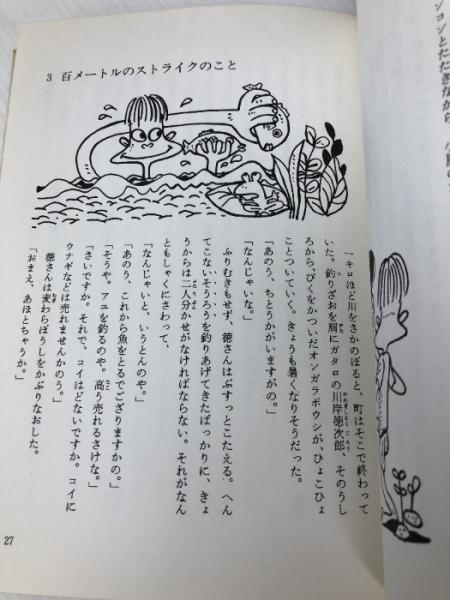 ンコンとたたきながら、
3 百メートルのストライクのこと
一キロほど川をさかのぼると、町はそこで終わって
いた。釣りざおを肩にガタロの川岸徳次郎、そのうし
ろから、びくをかついだオンガラボウシが、ひょこひょ
ことついていく。きょうも暑くなりそうだった。
「あのう、ちとうかがいますがの。」
「なんじゃいな。」
ふりむきもせず、徳さんはぶすっとこたえる。へん
てこないそうろうを釣りあげてきたばっかりに、きょ
うからは二人分かせがなければならない。それがなん
ともしゃくにさわって、
「なんじゃいと、いうとんのや。」
「あのう、これから魚をとるでございますかの。」
「そうや。アユを釣るのや。高う売れるさけな。」
「さいですか。それで、コイはどないですか。コイに
ウナギなどは売れませんかのう。」
徳さんは麦わらぼうしをかぶりなおした。
「おまえ、あほとちゃうか。」
27